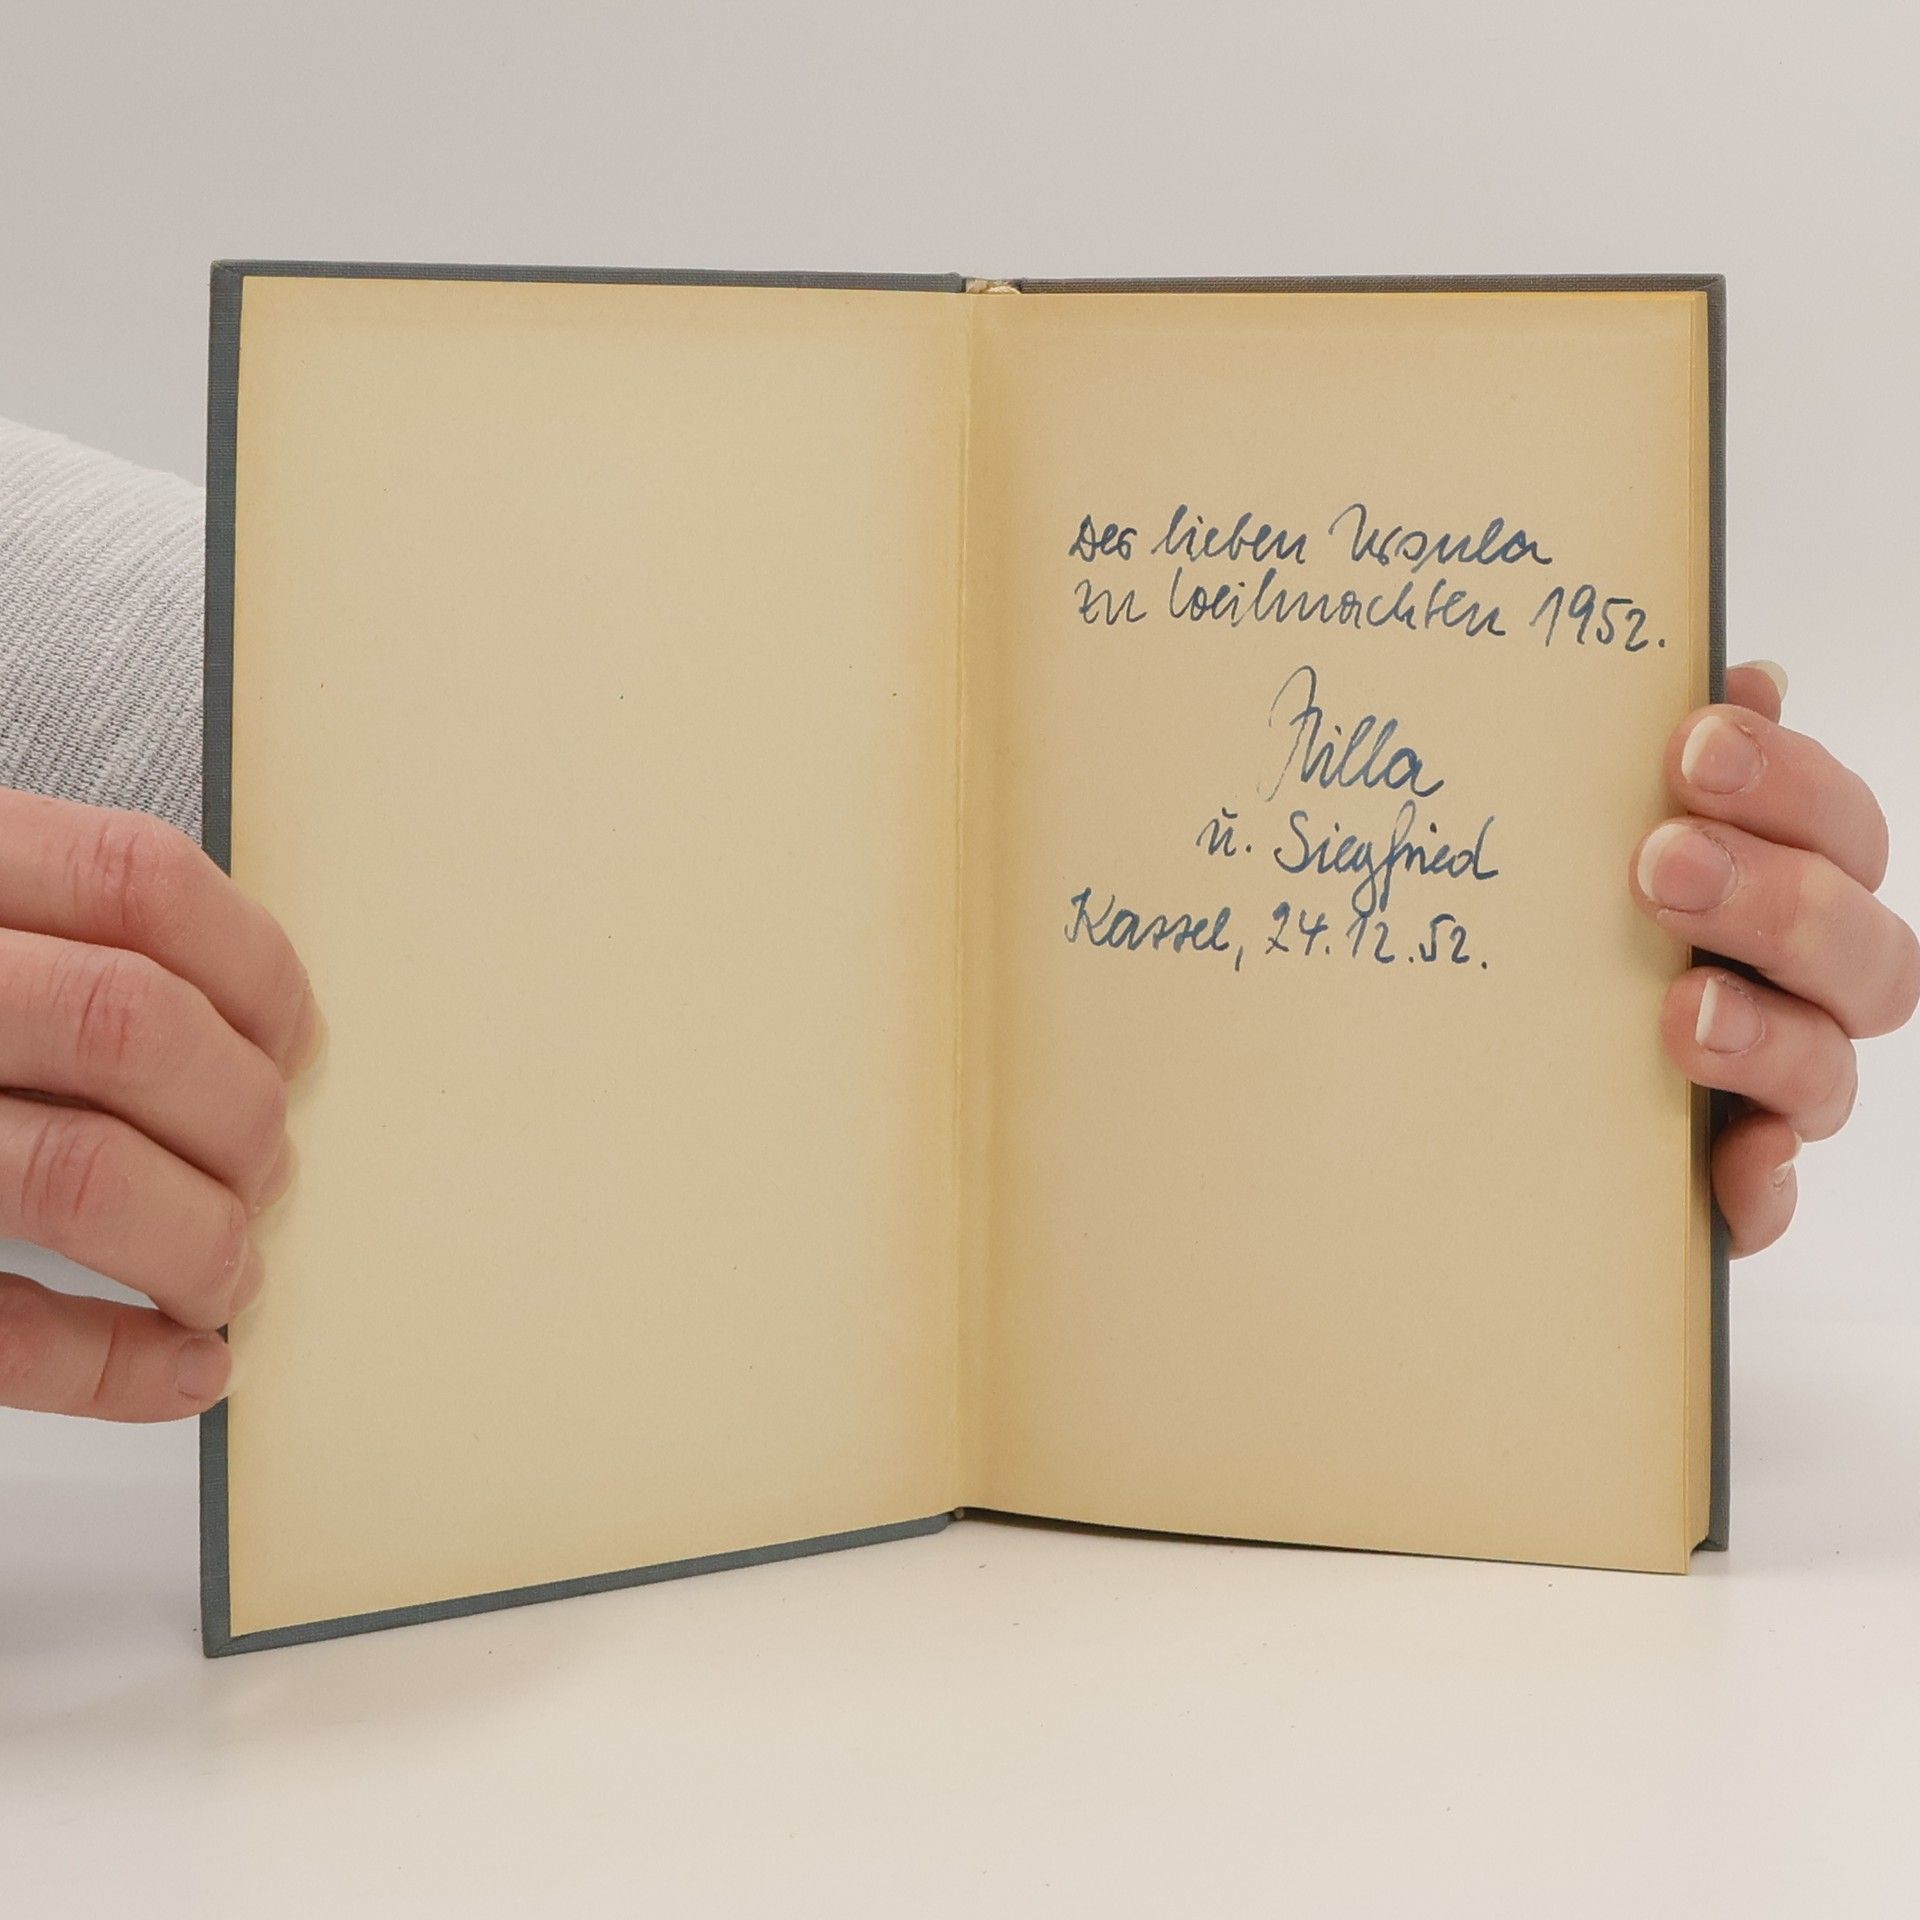 Der lieben Ursula
zu Weihnachten 1952.
u. Siegfried
Kassel, 24.12.52.